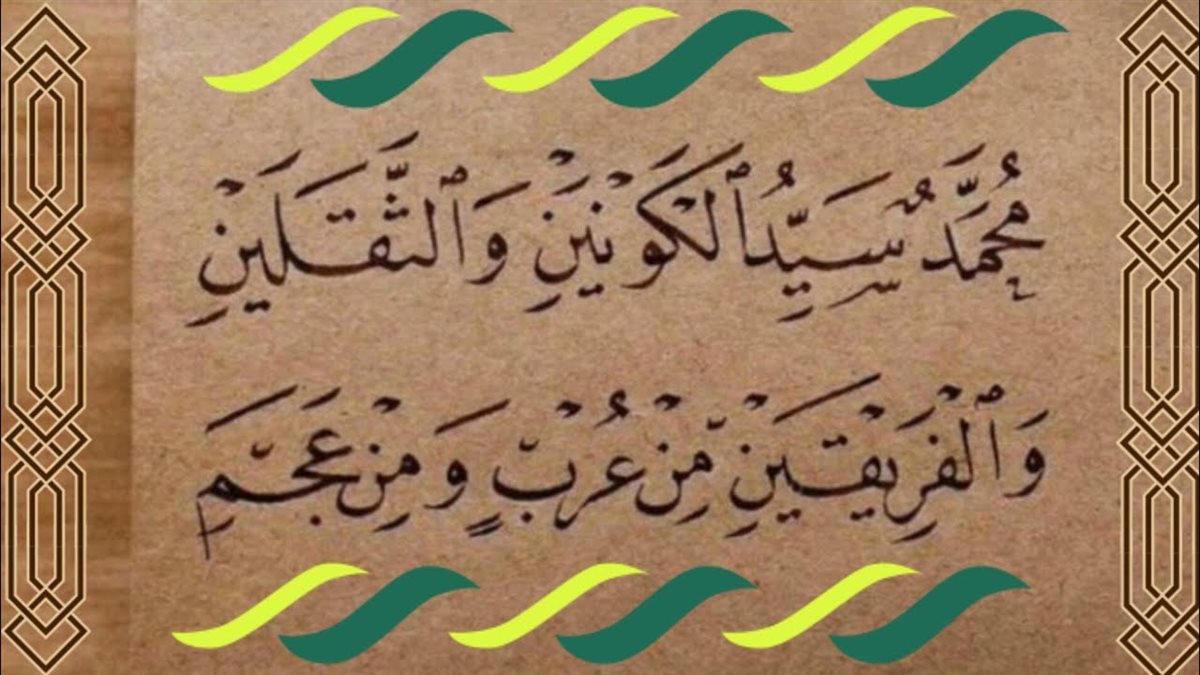 مُحَمَّدٌ سَيِّدُ ٱلْكَوْنَيْنِ وَٱلثَّقَلَيْنِ
وَٱلْفَرِيقَيْنِ مِنْ عُرْبٍ وَمِنْ عَجَمِ